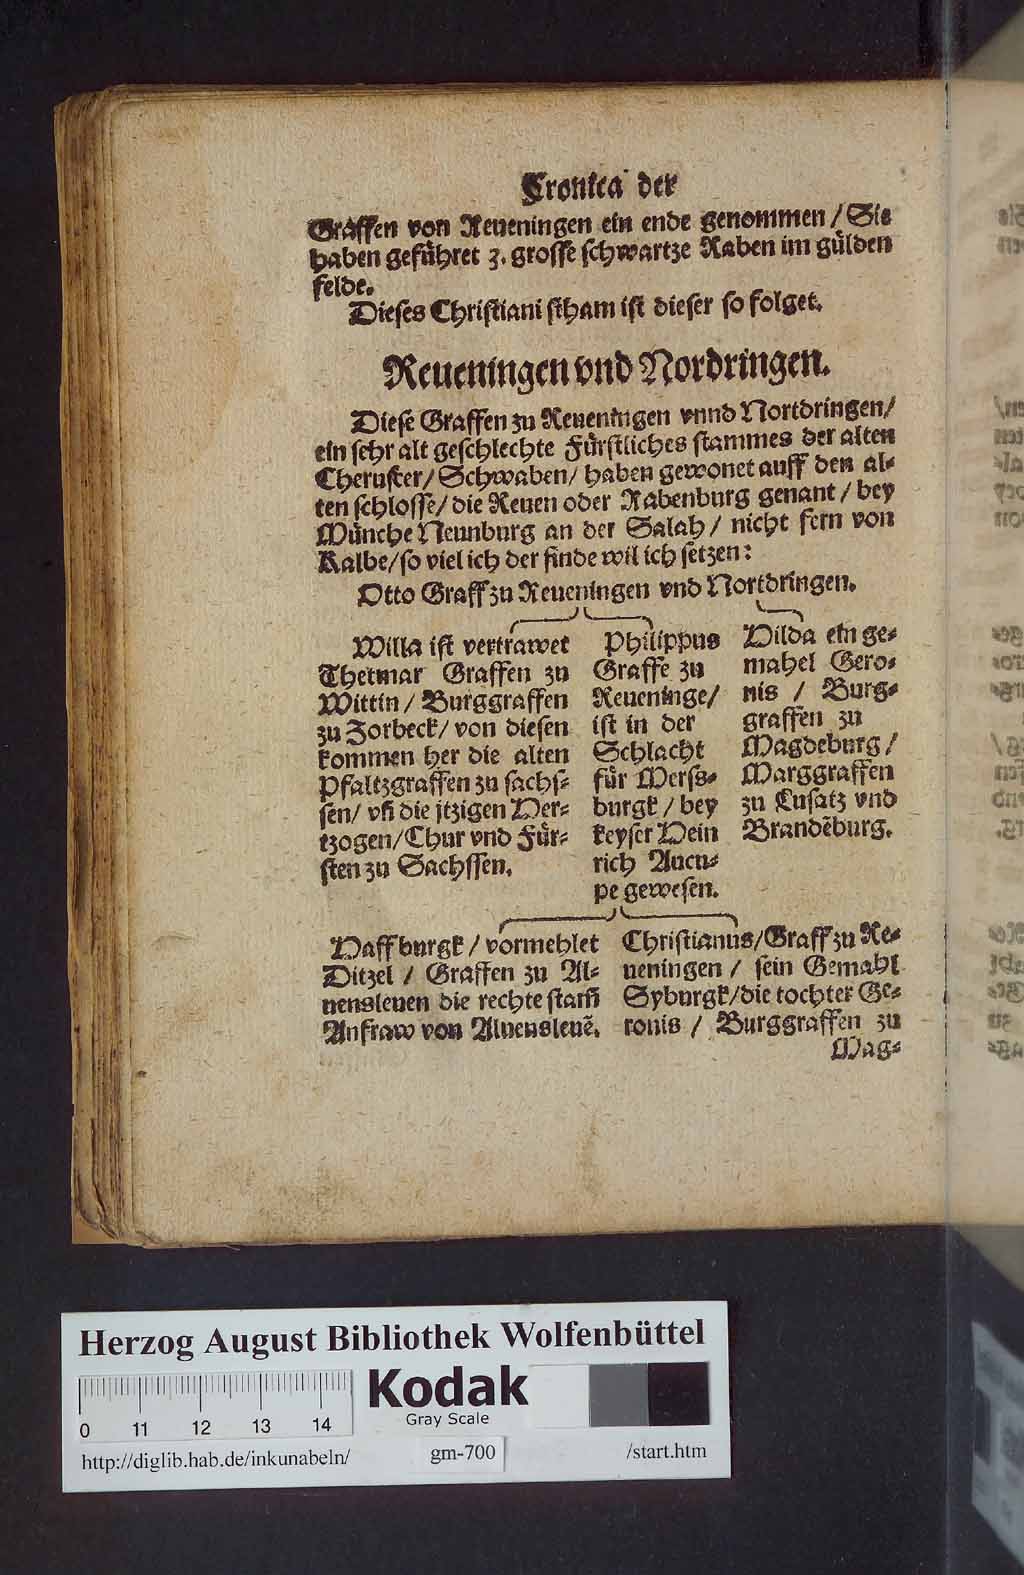 Cronica der
Graffen von Reueningen ein ende genommen / Sie
haben geführet 3. grosse schwartze Raben im gülden
felde.
Dieses Christiani stham ist dieser so folget.
Reueningen vnd Nordringen.
Diese Graffen zu Reueningen vnnd Nortdringen/
ein sehr alt geschlechte Fürstliches stammes der alten
Cherusker/ Schwaben/ haben gewonet auff den al-
ten schlosse/ die Reuen oder Rabenburg genant / bey
Münche Neunburg an der Salah / nicht fern von
Kalbe/ so viel ich der finde wil ich setzen:
Otto Graff zu Reueningen vnd Nortdringen.
Willa ist vertrawet
Thetmar Graffen zu
Wittin / Burggraffen
zu Zorbeck/ von diesen
kommen her die alten
Pfaltzgraffen zu sachs-
sen/ vn̄ die jtzigen Her-
tzogen/ Chur vnd Für-
sten zu Sachssen.
Philippus
Graffe zu
Reueninge/
ist in der
Schlacht
für Merss-
burgk / bey
keyser Hein
rich Aucu-
pe gewesen.
Hilda ein ge-
mahel Gero-
nis / Burg-
graffen zu
Magdeburg /
Marggraffen
zu Lusatz vnd
Brandēburg.
Haffburgk / vormehlet
Ditzel / Graffen zu Al-
uensleuen die rechte stam̄
Anfraw von Aluensleuē.
Christianus/ Graff zu Re-
ueningen / sein Gemahl
Syburgk/ die tochter Ge-
ronis / Burggraffen zu
Mag-
Herzog August Bibliothek Wolfenbüttel
0 11 12 13 14
Kodak
Gray Scale
http://diglib.hab.de/inkunabeln/ gm-700 /start.htm